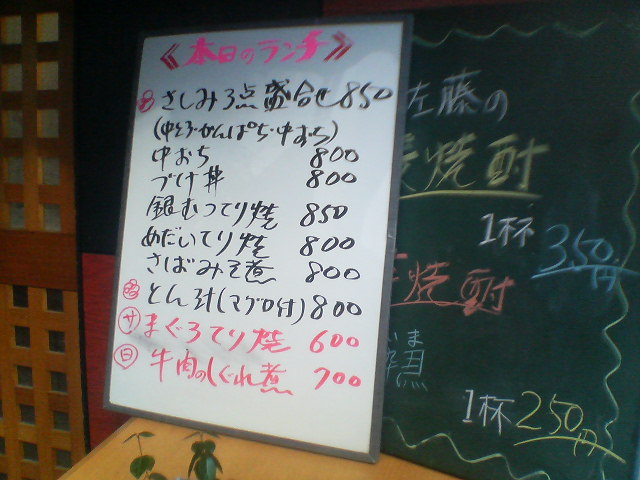 《本日のランチ》
さしみ3点盛合せ850
(中とろ・かんぱち・中おち)
中おち 800
づけ丼 800
銀むつてり焼 850
めだいてり焼 800
さばみそ煮 800
とん汁(マグロ付)800
サ まぐろてり焼 600
日 牛肉のしぐれ煮 700
佐藤の
麦焼酎
1杯 350円
芋焼酎
1杯 250円